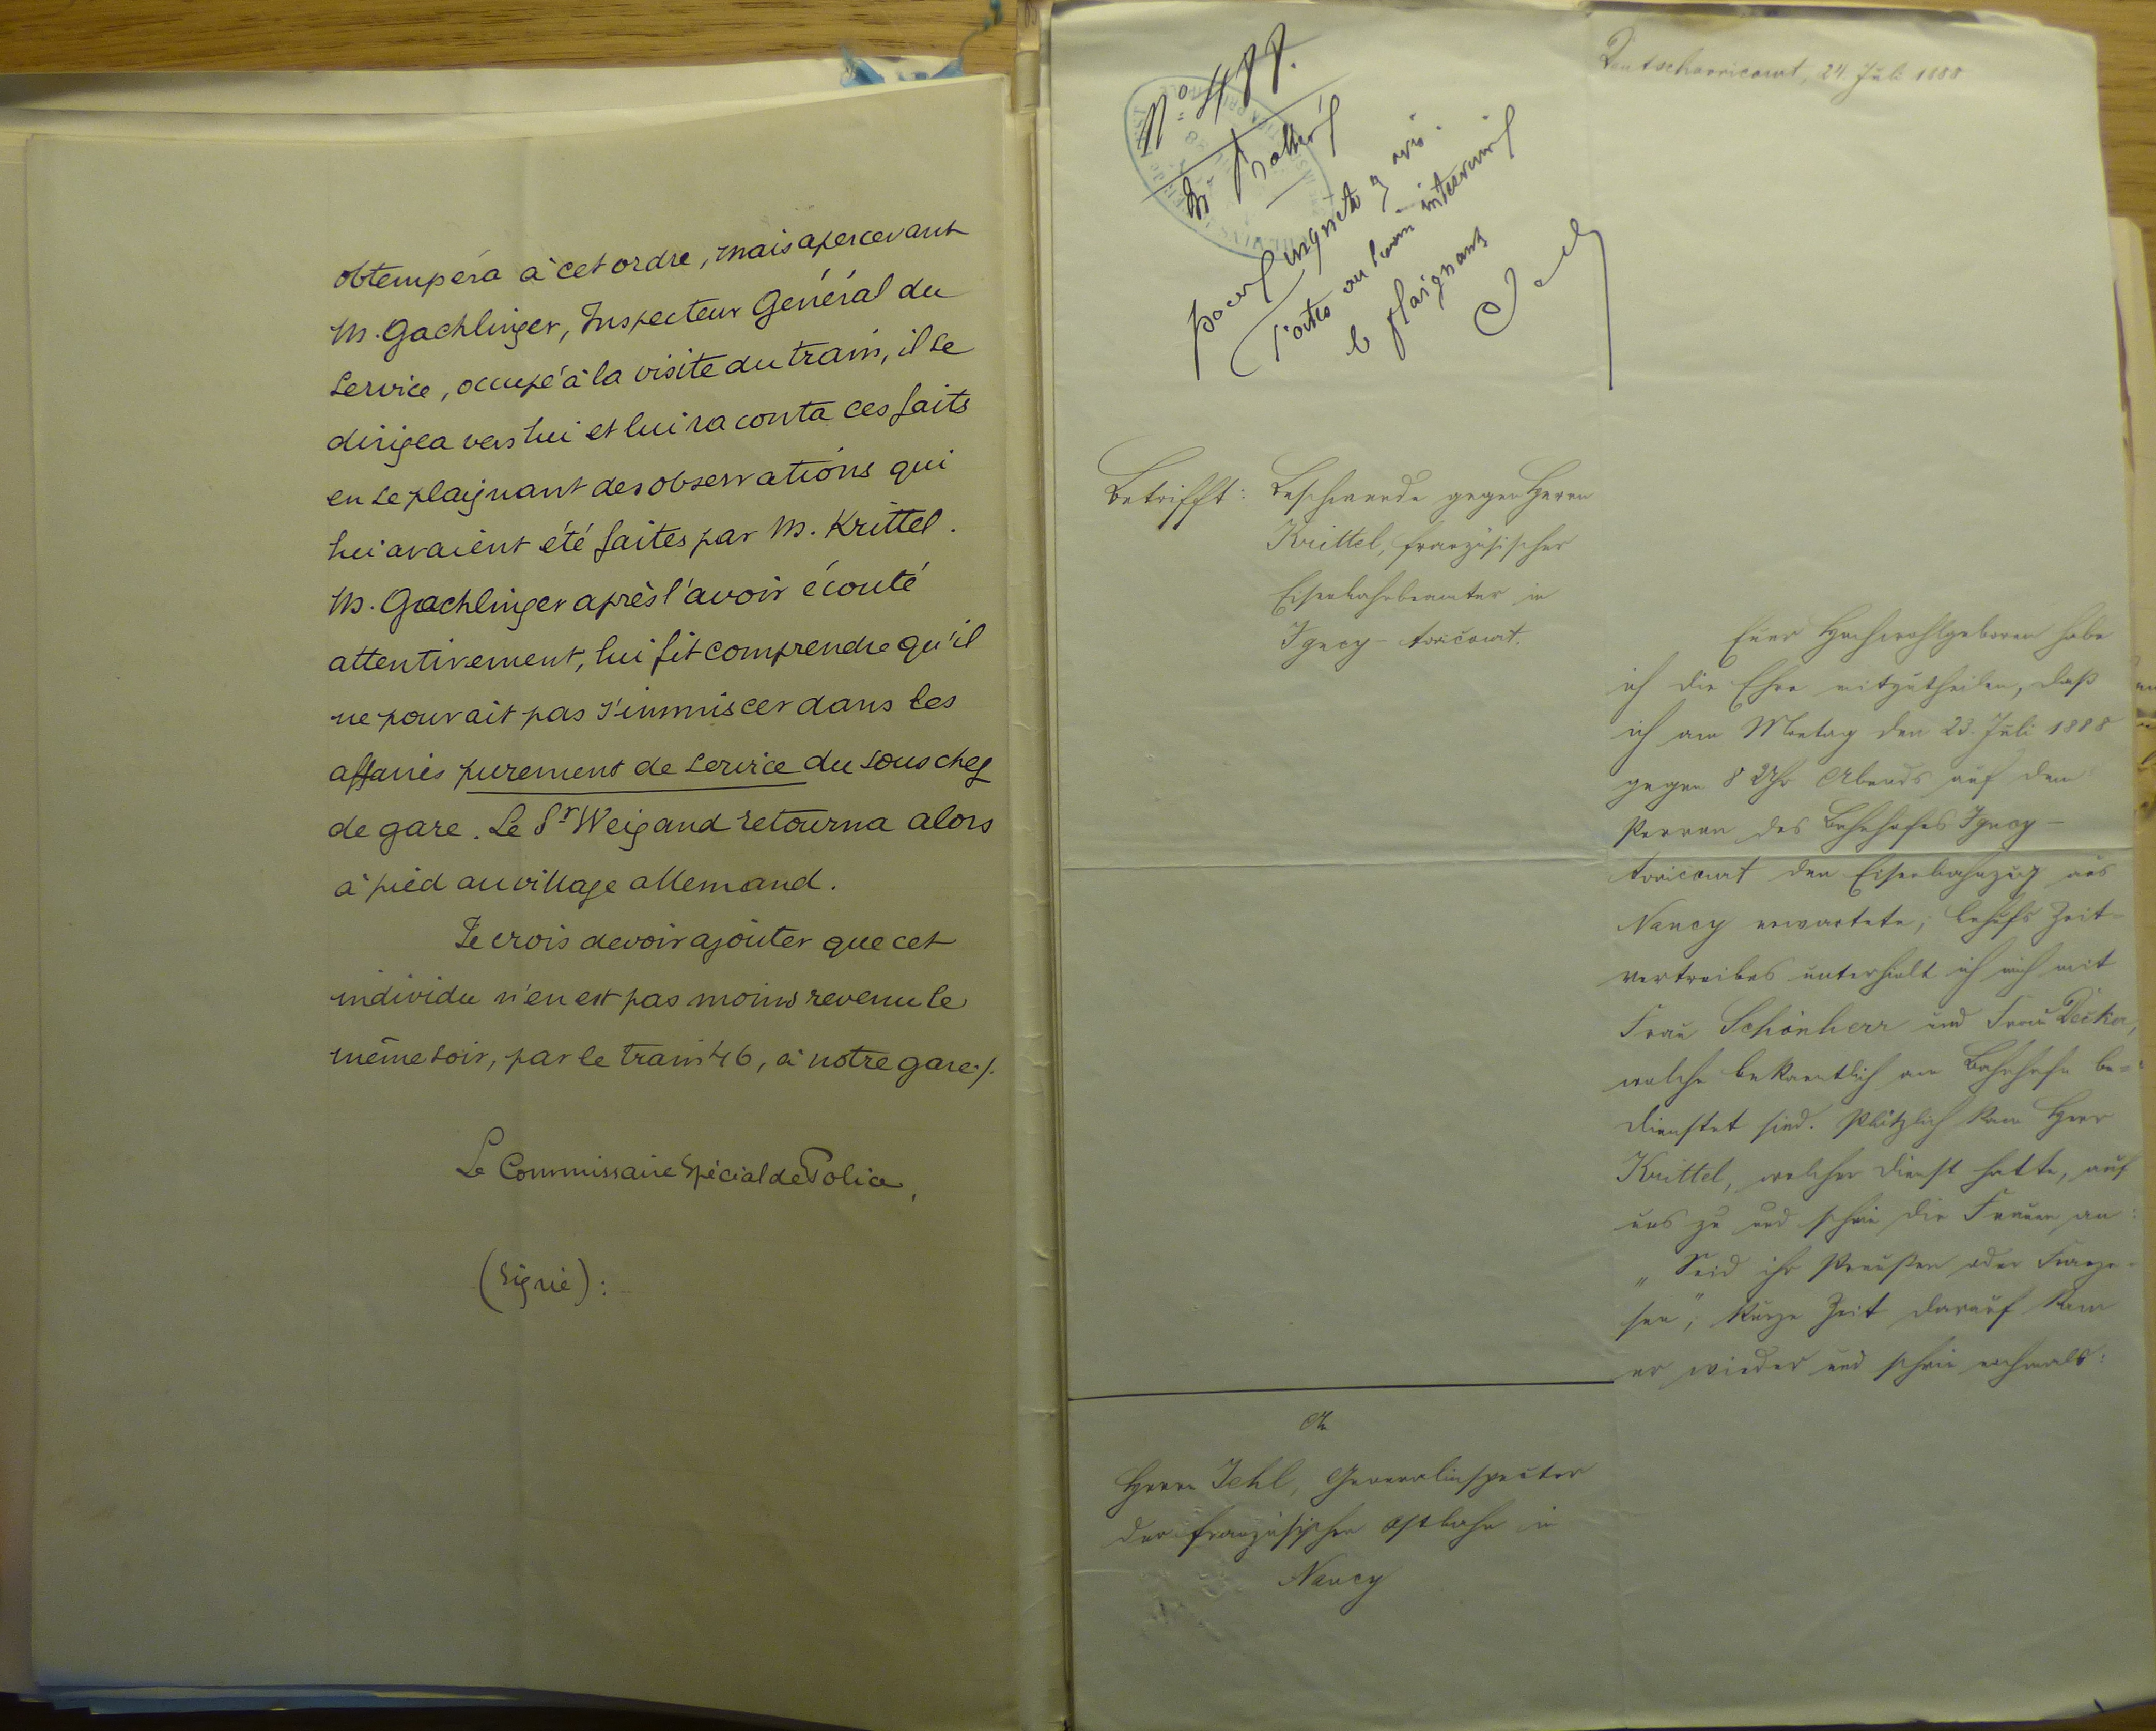 obtempéra à cet ordre, mais apercevant
M. Gachlinger, Inspecteur Général du
Service, occupé à la visite du train, il se
dirigea vers lui et lui raconta ces faits
en se plaignant des observations qui
lui avaient été faites par M. Krittel.
M. Gachlinger après l'avoir écouté
attentivement, lui fit comprendre qu'il
ne pouvait pas s'immiscer dans les
affaires purement de service du sous chef
de gare. Le Sr Weigand retourna alors
à pied au village allemand.
Je crois devoir ajouter que cet
individu n'en est pas moins revenu le
même soir, par le train 46, à notre gare ./.
Le Commissaire Spécial de Police,
(Signé):
No 488.
pour enquête & avis
le plaignant
Deutschavricourt, 24. Juli 1888
Betrifft: Beschwerde gegen Herrn
Krittel, französischer
Eisenbahnbeamter in
Igney-Avricourt.
Euer Hochwohlgeboren habe
ich die Ehre mitzutheilen, daß
ich am Montag den 23. Juli 1888
gegen 8 Uhr Abends auf dem
Perron des Bahnhofes Igney-
Avricourt den Eisenbahnzug aus
Nancy erwartete; behufs Zeit-
vertreibes unterhielt ich mich mit
Frau Schönherr und Frau Decker,
welche bekanntlich am Bahnhofe be-
dienstet sind. Plötzlich kam Herr
Krittel, welcher Dienst hatte, auf
uns zu und schrie die Frauen an:
„Seid ihr Preußen oder Franzo-
sen"; kurze Zeit darauf kam
er wieder und schrie nochmals:
An
Herrn Jehl, Generalinspector
der französischen Ostbahn in
Nancy